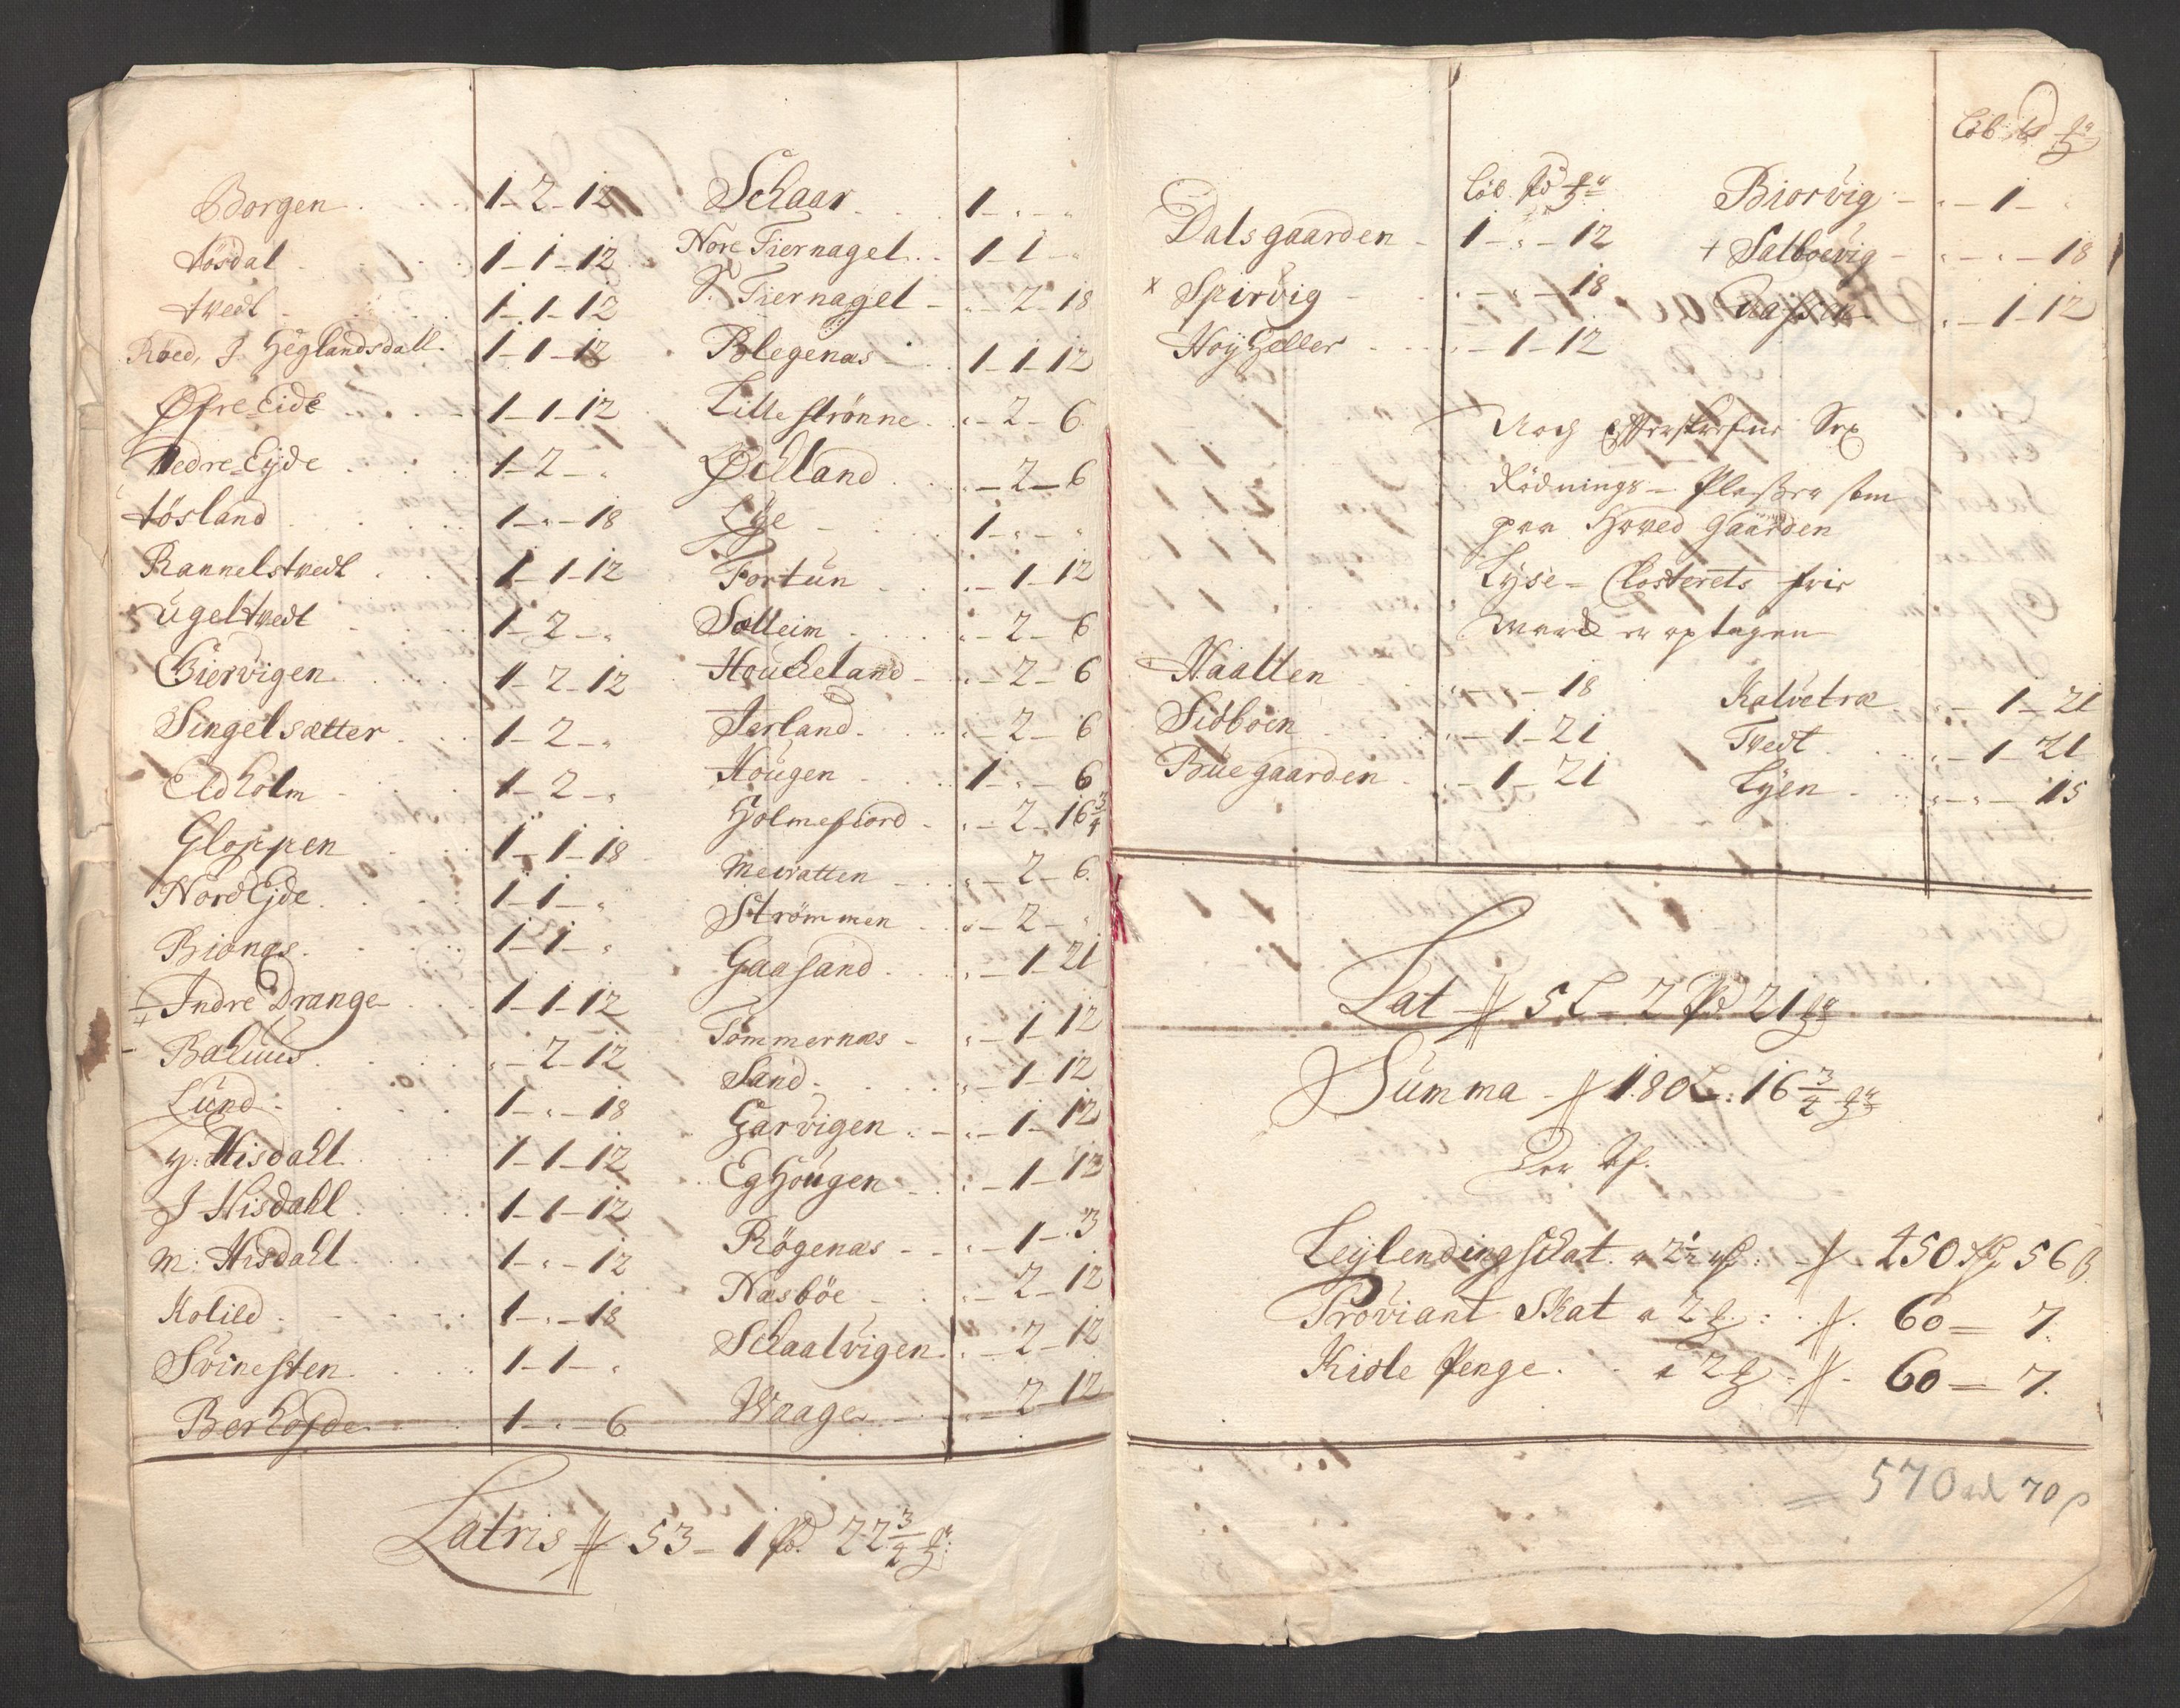 Borgen 1-2-12
tösdal 1-1-12
tvedt 1-1-12
Röed, J. Heglandsdall 1-1-12
Øfre Eide 1-1-12
Nedre Eyde 1-2-"
tösland 1-"-18
Rannelstvedt 1-1-12
Ugeltvedt 1-2-"
Giervigen 1-2-12
Singelsætter 1-2-"
Eldholm 1-2-"
Gloppen 1-1-18
Nord Eyde 1-1-"
Bionæs 1-1-"
Indre Drange 1-1-12
Bahuus "-2-12
Lund 1-"-18
y: Hisdahl 1-1-12
J Hisdahl 1-1-12
M: Hisdahl 1-"-12
Kolild 1-"-18
Svinesten 1-1-"
Berhofde 1-"-6
Schaar 1-"-"
Nore Tiernagel 1-1-"
S. Tiernagel "-2-18
Blegenæs 1-1-12
Lille strønne "-2-6
Øchland "-2-6
Lye 1-"-"
Fortun "-1-12
Solleim "-2-6
Houcheland "-2-6
Jarland "-2-6
Hougen 1-"-6
Holmefiord "-2-16 3/4
Mevatten "-2-6
Strömmen "-2-"
Gaasand "-1-21
Tömmernæs "-1-12
Sand "-1-12
Garvigen "-1-12
Eghougen "-1-12
Rögenæs "-1-3
Næsböe "-2-12
Schaalvigen "-2-12
Waage "-2-12
Latris # 53-1 pd. 22 3/4 #:
Löb pd #
Dalsgaarden 1-"-12
x Spirvig "-"-18
Höyheller "-1-12
Löb pd #
Biorvig "-1-"
+ Salboevig "-"-18
Vaasen "-1-12
Noch Efterskrefne Sex
Rödnings-Pladser som
paa Hoved Gaarden
Lyse-Closterets frie
March er optagen
Haatten "-"-18
Sidboen "-1-21
Buegaarden "-1-21
Kalvetræ "-1-21
Tvedt "-1-21
Lyen "-"-15
Lat # 5 L-2 pd 21 #
Summa # 180 L: 16 3/4 #
Der Af.
Leylending Schat. a 2½ # 450 Rdr 56 ß
Proviant Skat a 2 # 60 = 7.
Kiole Penge. a 2 # 60 = 7.
570 rd 70 ß